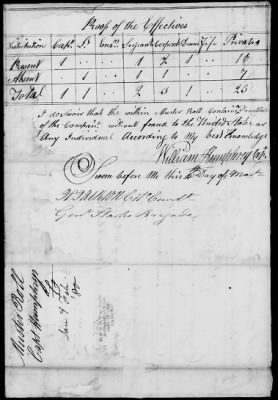 Proof of the Effectives
Capt Lt Ensn Serjeants Corporals Drum Fife Privates
Present 1 1 1 2 1 1 16
Absent 1 1 1 7
Total 1 1 2 3 1 1 23
I do Swair that the within Muster Roll Containing
of the Company without fraud to the United States or
Any Individual According to My best Knowledge
William Humphrey Capt
Sworn before Me this Day of
Genl Starks Brigade
Muster Roll
Capt Humphreys
Jan & Feb
80